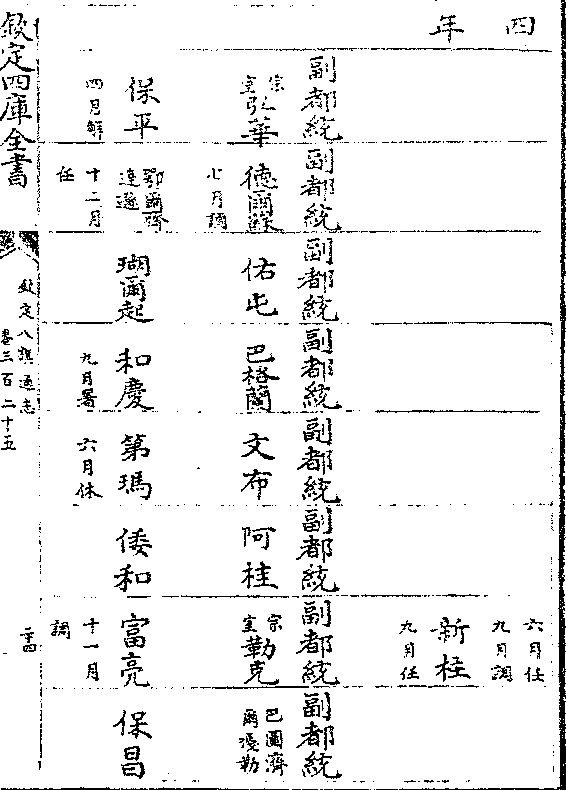 四年
六月任
九月調
新柱
九月任
副都統
宗室弘華
保平
四月解
副都統
德爾蘇
七月調
鄂爾齊達遜
十二月任
副都統
佑屯
瑚爾起
副都統
巴格蘭
和慶
九月署
副都統
文布
第瑪
六月休
副都統
阿桂
倭和
副都統
宗室勒克
富亮
十一月調
副都統
巴圖濟爾噶勒
保昌
欽定四庫全書
欽定八旗通志
卷三百二十五
二十四